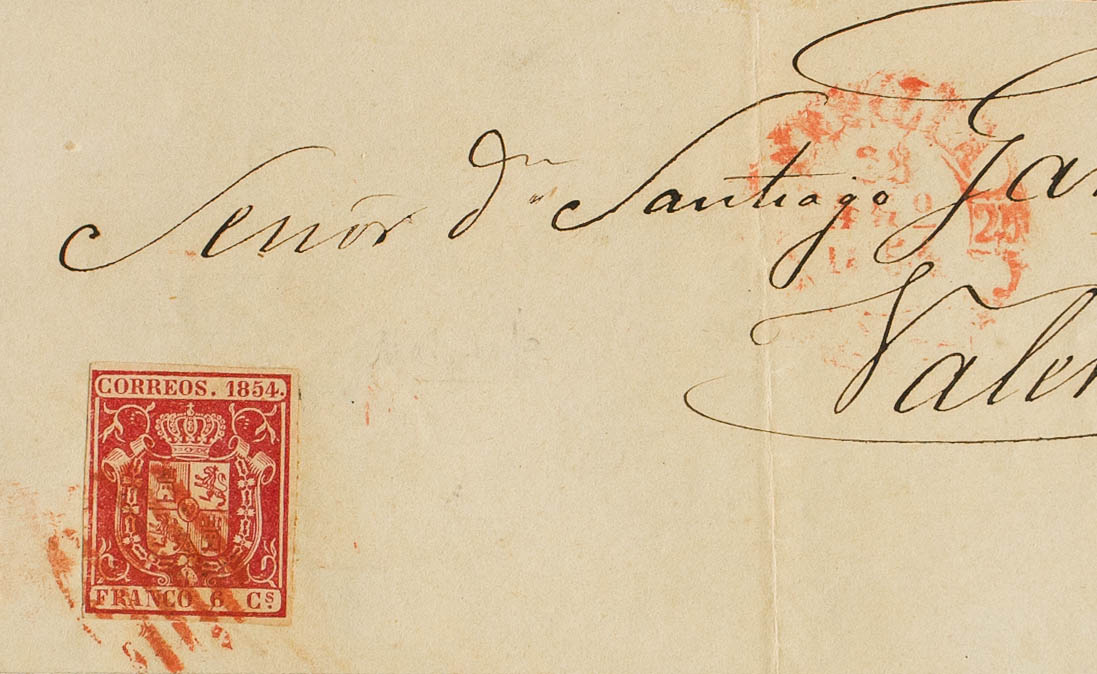 Señor Dn Santiago Gar
Valen
28
25
CORREOS. 1854.
FRANCO 6 Cs